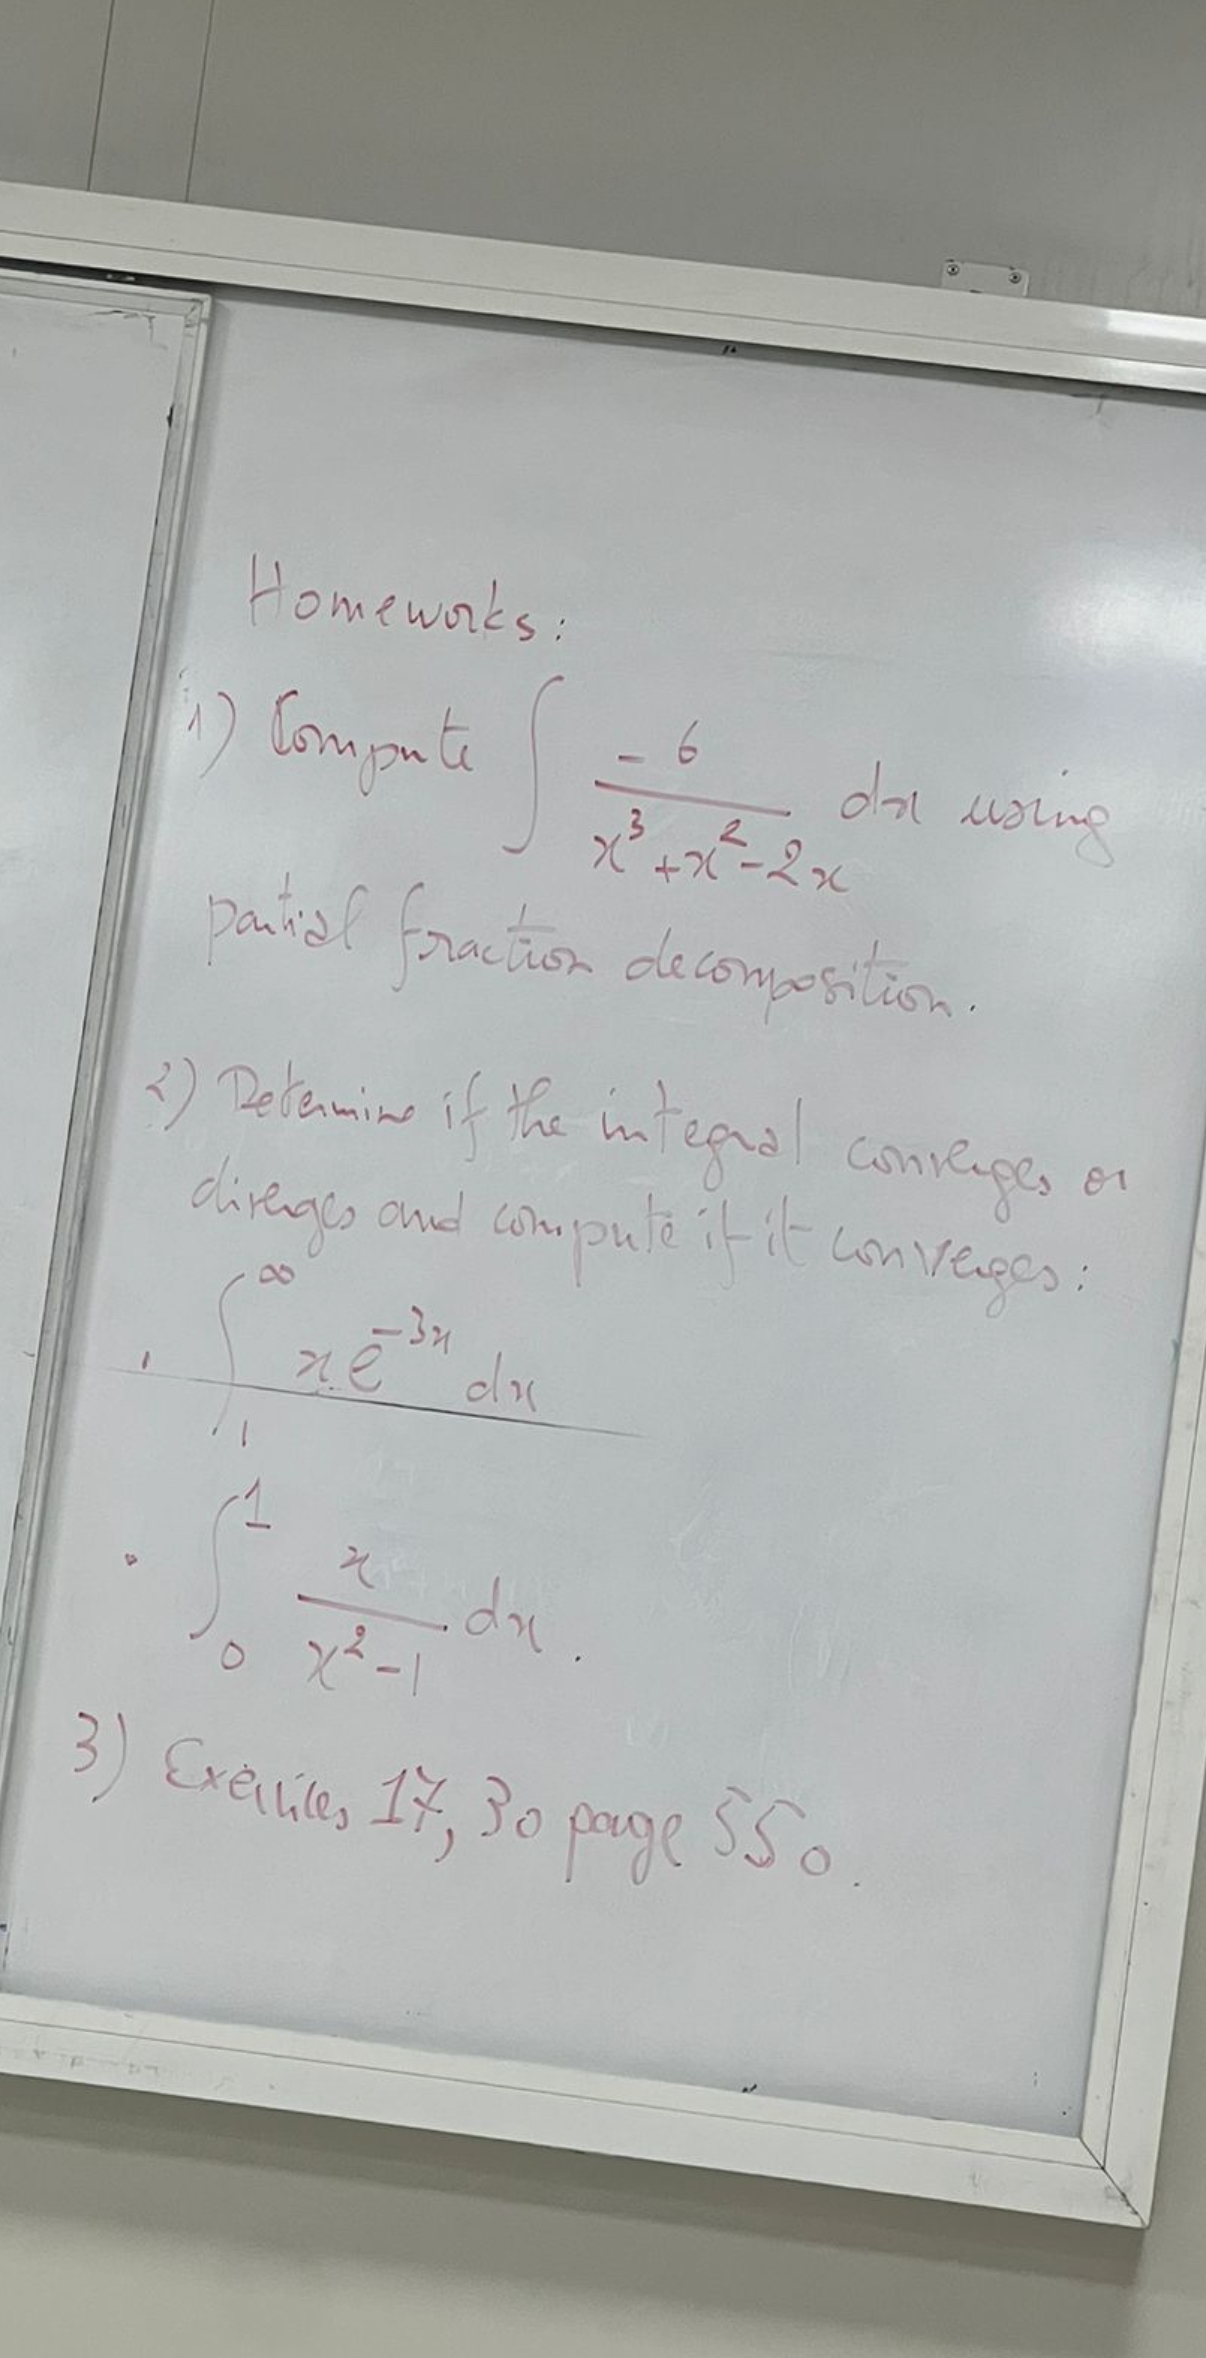 Homeworks:
1) Compute ∫ -6/(x³+x²-2x) dx using
partial fraction decomposition.
2) Determine if the integral converges or
diverges and compute if it converges:
. ∫₁^∞ x e^(-3x) dx
. ∫₀^1 x/(x²-1) dx.
3) Exercices 17, 30 page 550.